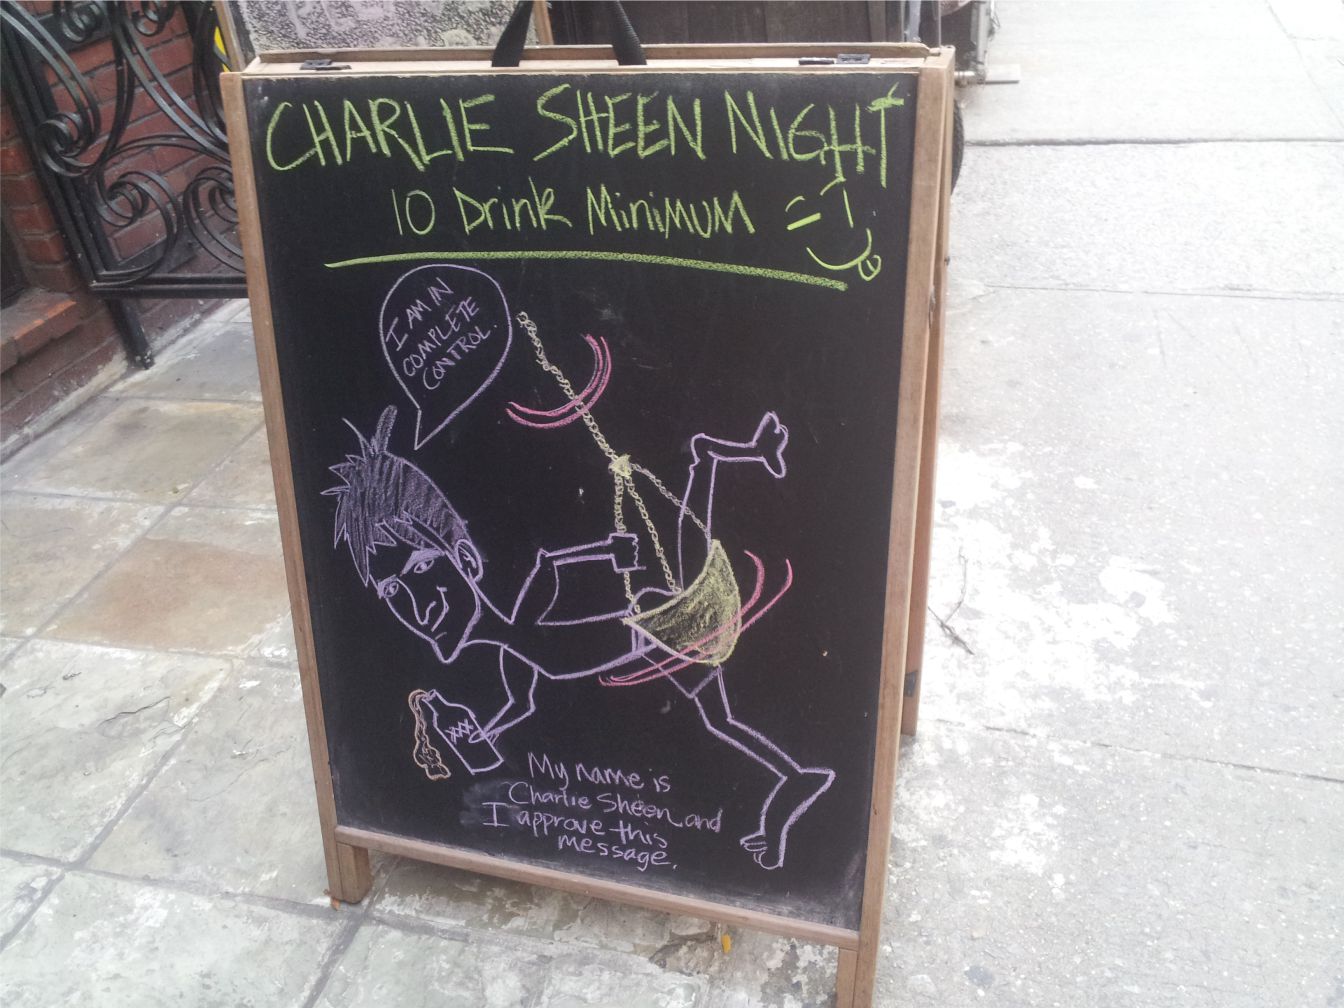 CHARLIE SHEEN NIGHT
10 Drink Minimum
I AM IN
COMPLETE
CONTROL.
XXX
My name is
Charlie Sheen and
I approve this
message.